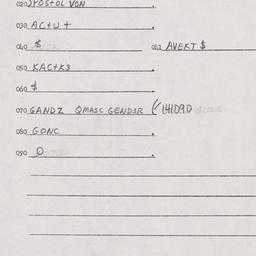 020 )POSTOL VON
030 ACTUT
040 $ 042 AVEKT $
050 KACTK3
060 $
070 GANDZ QMASC GENDSR (141D9D
080 GONC
090 O